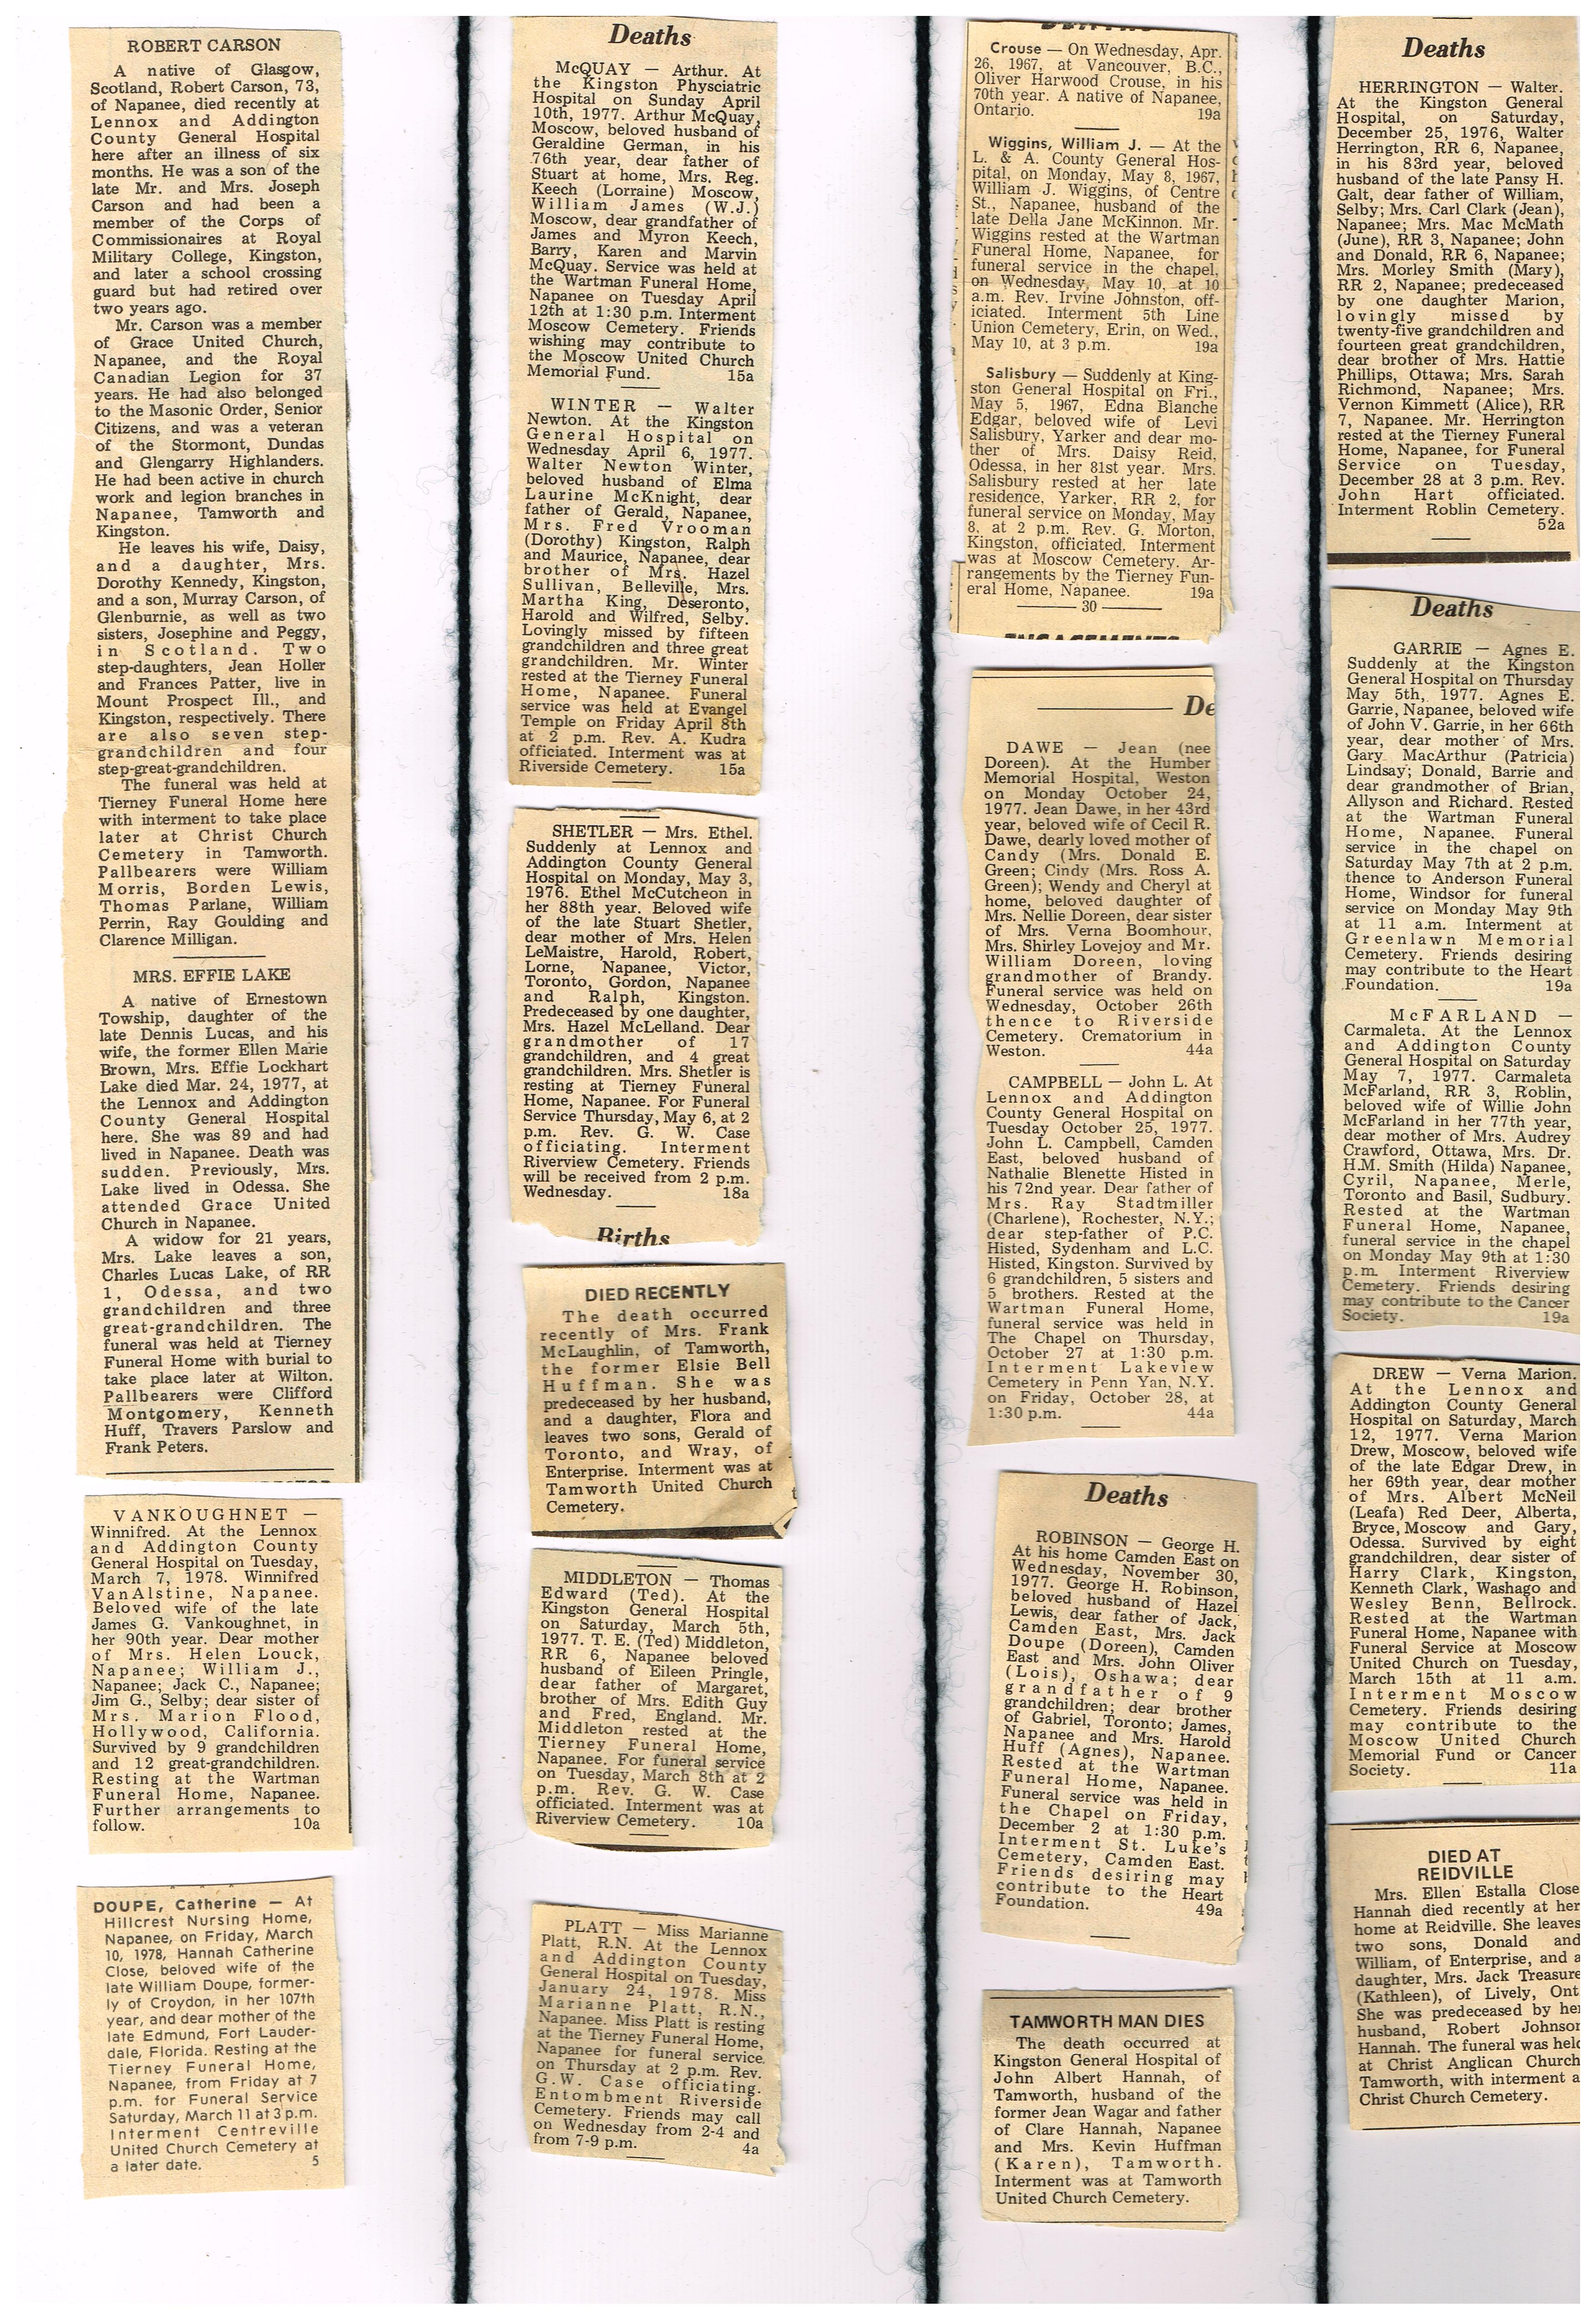 ROBERT CARSON
A native of Glasgow,
Scotland, Robert Carson, 73,
of Napanee, died recently at
Lennox and Addington
County General Hospital
here after an illness of six
months. He was a son of the
late Mr. and Mrs. Joseph
Carson and had been a
member of the Corps of
Commissionaires at Royal
Military College, Kingston,
and later a school crossing
guard but had retired over
two years ago.
Mr. Carson was a member
of Grace United Church,
Napanee, and the Royal
Canadian Legion for 37
years. He had also belonged
to the Masonic Order, Senior
Citizens, and was a veteran
of the Stormont, Dundas
and Glengarry Highlanders.
He had been active in church
work and legion branches in
Napanee, Tamworth and
Kingston.
He leaves his wife, Daisy,
and a daughter, Mrs.
Dorothy Kennedy, Kingston,
and a son, Murray Carson, of
Glenburnie, as well as two
sisters, Josephine and Peggy,
in Scotland. Two
step-daughters, Jean Holler
and Frances Patter, live in
Mount Prospect Ill., and
Kingston, respectively. There
are also seven step-
grandchildren and four
step-great-grandchildren.
The funeral was held at
Tierney Funeral Home here
with interment to take place
later at Christ Church
Cemetery in Tamworth.
Pallbearers were William
Morris, Borden Lewis,
Thomas Parlane, William
Perrin, Ray Goulding and
Clarence Milligan.
MRS. EFFIE LAKE
A native of Ernestown
Towship, daughter of the
late Dennis Lucas, and his
wife, the former Ellen Marie
Brown, Mrs. Effie Lockhart
Lake died Mar. 24, 1977, at
the Lennox and Addington
County General Hospital
here. She was 89 and had
lived in Napanee. Death was
sudden. Previously, Mrs.
Lake lived in Odessa. She
attended Grace United
Church in Napanee.
A widow for 21 years,
Mrs. Lake leaves a son,
Charles Lucas Lake, of RR
1, Odessa, and two
grandchildren and three
great-grandchildren. The
funeral was held at Tierney
Funeral Home with burial to
take place later at Wilton.
Pallbearers were Clifford
Montgomery, Kenneth
Huff, Travers Parslow and
Frank Peters.
VANKOUGHNET —
Winnifred. At the Lennox
and Addington County
General Hospital on Tuesday,
March 7, 1978. Winnifred
VanAlstine, Napanee.
Beloved wife of the late
James G. Vankoughnet, in
her 90th year. Dear mother
of Mrs. Helen Louck,
Napanee; William J.,
Napanee; Jack C., Napanee;
Jim G., Selby; dear sister of
Mrs. Marion Flood,
Hollywood, California.
Survived by 9 grandchildren
and 12 great-grandchildren.
Resting at the Wartman
Funeral Home, Napanee.
Further arrangements to
follow. 10a
DOUPE, Catherine — At
Hillcrest Nursing Home,
Napanee, on Friday, March
10, 1978, Hannah Catherine
Close, beloved wife of the
late William Doupe, former-
ly of Croydon, in her 107th
year, and dear mother of the
late Edmund, Fort Lauder-
dale, Florida. Resting at the
Tierney Funeral Home,
Napanee, from Friday at 7
p.m. for Funeral Service
Saturday, March 11 at 3 p.m.
Interment Centreville
United Church Cemetery at
a later date. 5
Deaths
McQUAY — Arthur. At
the Kingston Physciatric
Hospital on Sunday April
10th, 1977. Arthur McQuay,
Moscow, beloved husband of
Geraldine German, in his
76th year, dear father of
Stuart at home, Mrs. Reg.
Keech (Lorraine) Moscow,
William James (W.J.)
Moscow, dear grandfather of
James and Myron Keech,
Barry, Karen and Marvin
McQuay. Service was held at
the Wartman Funeral Home,
Napanee on Tuesday April
12th at 1:30 p.m. Interment
Moscow Cemetery. Friends
wishing may contribute to
the Moscow United Church
Memorial Fund. 15a
WINTER — Walter
Newton. At the Kingston
General Hospital on
Wednesday April 6, 1977.
Walter Newton Winter,
beloved husband of Elma
Laurine McKnight, dear
father of Gerald, Napanee,
Mrs. Fred Vrooman
(Dorothy) Kingston, Ralph
and Maurice, Napanee, dear
brother of Mrs. Hazel
Sullivan, Belleville, Mrs.
Martha King, Deseronto,
Harold and Wilfred, Selby.
Lovingly missed by fifteen
grandchildren and three great
grandchildren. Mr. Winter
rested at the Tierney Funeral
Home, Napanee. Funeral
service was held at Evangel
Temple on Friday April 8th
at 2 p.m. Rev. A. Kudra
officiated. Interment was at
Riverside Cemetery. 15a
SHETLER — Mrs. Ethel.
Suddenly at Lennox and
Addington County General
Hospital on Monday, May 3,
1976. Ethel McCutcheon in
her 88th year. Beloved wife
of the late Stuart Shetler,
dear mother of Mrs. Helen
LeMaistre, Harold, Robert,
Lorne, Napanee, Victor,
Toronto, Gordon, Napanee
and Ralph, Kingston.
Predeceased by one daughter,
Mrs. Hazel McLelland. Dear
grandmother of 17
grandchildren, and 4 great
grandchildren. Mrs. Shetler is
resting at Tierney Funeral
Home, Napanee. For Funeral
Service Thursday, May 6, at 2
p.m. Rev. G. W. Case
officiating. Interment
Riverview Cemetery. Friends
will be received from 2 p.m.
Wednesday. 18a
Births
DIED RECENTLY
The death occurred
recently of Mrs. Frank
McLaughlin, of Tamworth,
the former Elsie Bell
Huffman. She was
predeceased by her husband,
and a daughter, Flora and
leaves two sons, Gerald of
Toronto, and Wray, of
Enterprise. Interment was at
Tamworth United Church
Cemetery.
MIDDLETON — Thomas
Edward (Ted). At the
Kingston General Hospital
on Saturday, March 5th,
1977. T. E. (Ted) Middleton,
RR 6, Napanee beloved
husband of Eileen Pringle,
dear father of Margaret,
brother of Mrs. Edith Guy
and Fred, England. Mr.
Middleton rested at the
Tierney Funeral Home,
Napanee. For funeral service
on Tuesday, March 8th at 2
p.m. Rev. G. W. Case
officiated. Interment was at
Riverview Cemetery. 10a
PLATT — Miss Marianne
Platt, R.N. At the Lennox
and Addington County
General Hospital on Tuesday,
January 24, 1978. Miss
Marianne Platt, R.N.,
Napanee. Miss Platt is resting
at the Tierney Funeral Home,
Napanee for funeral service
on Thursday at 2 p.m. Rev.
G.W. Case officiating.
Entombment Riverside
Cemetery. Friends may call
on Wednesday from 2-4 and
from 7-9 p.m. 4a
Crouse — On Wednesday, Apr.
26, 1967, at Vancouver, B.C.,
Oliver Harwood Crouse, in his
70th year. A native of Napanee,
Ontario. 19a
Wiggins, William J. — At the
L. & A. County General Hos-
pital, on Monday, May 8, 1967,
William J. Wiggins, of Centre
St., Napanee, husband of the
late Della Jane McKinnon. Mr.
Wiggins rested at the Wartman
Funeral Home, Napanee, for
funeral service in the chapel,
on Wednesday, May 10, at 10
a.m. Rev. Irvine Johnston, off-
iciated. Interment 5th Line
Union Cemetery, Erin, on Wed.,
May 10, at 3 p.m. 19a
Salisbury — Suddenly at King-
ston General Hospital on Fri.,
May 5, 1967, Edna Blanche
Edgar, beloved wife of Levi
Salisbury, Yarker and dear mo-
ther of Mrs. Daisy Reid,
Odessa, in her 81st year. Mrs.
Salisbury rested at her late
residence, Yarker, RR 2, for
funeral service on Monday, May
8, at 2 p.m. Rev. G. Morton,
Kingston, officiated. Interment
was at Moscow Cemetery. Ar-
rangements by the Tierney Fun-
eral Home, Napanee. 19a
30
ENGAGEMENTS
De
DAWE — Jean (nee
Doreen). At the Humber
Memorial Hospital, Weston
on Monday October 24,
1977. Jean Dawe, in her 43rd
year, beloved wife of Cecil R.
Dawe, dearly loved mother of
Candy (Mrs. Donald E.
Green; Cindy (Mrs. Ross A.
Green); Wendy and Cheryl at
home, beloved daughter of
Mrs. Nellie Doreen, dear sister
of Mrs. Verna Boomhour,
Mrs. Shirley Lovejoy and Mr.
William Doreen, loving
grandmother of Brandy.
Funeral service was held on
Wednesday, October 26th
thence to Riverside
Cemetery. Crematorium in
Weston. 44a
CAMPBELL — John L. At
Lennox and Addington
County General Hospital on
Tuesday October 25, 1977.
John L. Campbell, Camden
East, beloved husband of
Nathalie Blenette Histed in
his 72nd year. Dear father of
Mrs. Ray Stadtmiller
(Charlene), Rochester, N.Y.;
dear step-father of P.C.
Histed, Sydenham and L.C.
Histed, Kingston. Survived by
6 grandchildren, 5 sisters and
5 brothers. Rested at the
Wartman Funeral Home,
funeral service was held in
The Chapel on Thursday,
October 27 at 1:30 p.m.
Interment Lakeview
Cemetery in Penn Yan, N.Y.
on Friday, October 28, at
1:30 p.m. 44a
Deaths
ROBINSON — George H.
At his home Camden East on
Wednesday, November 30,
1977. George H. Robinson,
beloved husband of Hazel
Lewis, dear father of Jack,
Camden East, Mrs. Jack
Doupe (Doreen), Camden
East and Mrs. John Oliver
(Lois), Oshawa; dear
grandfather of 9
grandchildren; dear brother
of Gabriel, Toronto; James,
Napanee and Mrs. Harold
Huff (Agnes), Napanee.
Rested at the Wartman
Funeral Home, Napanee.
Funeral service was held in
the Chapel on Friday,
December 2 at 1:30 p.m.
Interment St. Luke's
Cemetery, Camden East.
Friends desiring may
contribute to the Heart
Foundation. 49a
TAMWORTH MAN DIES
The death occurred at
Kingston General Hospital of
John Albert Hannah, of
Tamworth, husband of the
former Jean Wagar and father
of Clare Hannah, Napanee
and Mrs. Kevin Huffman
(Karen), Tamworth.
Interment was at Tamworth
United Church Cemetery.
Deaths
HERRINGTON — Walter.
At the Kingston General
Hospital, on Saturday,
December 25, 1976, Walter
Herrington, RR 6, Napanee,
in his 83rd year, beloved
husband of the late Pansy H.
Galt, dear father of William,
Selby; Mrs. Carl Clark (Jean),
Napanee; Mrs. Mac McMath
(June), RR 3, Napanee; John
and Donald, RR 6, Napanee;
Mrs. Morley Smith (Mary),
RR 2, Napanee; predeceased
by one daughter Marion,
lovingly missed by
twenty-five grandchildren and
fourteen great grandchildren,
dear brother of Mrs. Hattie
Phillips, Ottawa; Mrs. Sarah
Richmond, Napanee; Mrs.
Vernon Kimmett (Alice), RR
7, Napanee. Mr. Herrington
rested at the Tierney Funeral
Home, Napanee, for Funeral
Service on Tuesday,
December 28 at 3 p.m. Rev.
John Hart officiated.
Interment Roblin Cemetery.
52a
Deaths
GARRIE — Agnes E.
Suddenly at the Kingston
General Hospital on Thursday
May 5th, 1977. Agnes E.
Garrie, Napanee, beloved wife
of John V. Garrie, in her 66th
year, dear mother of Mrs.
Gary MacArthur (Patricia)
Lindsay; Donald, Barrie and
dear grandmother of Brian,
Allyson and Richard. Rested
at the Wartman Funeral
Home, Napanee. Funeral
service in the chapel on
Saturday May 7th at 2 p.m.
thence to Anderson Funeral
Home, Windsor for funeral
service on Monday May 9th
at 11 a.m. Interment at
Greenlawn Memorial
Cemetery. Friends desiring
may contribute to the Heart
Foundation. 19a
McFARLAND —
Carmaleta. At the Lennox
and Addington County
General Hospital on Saturday
May 7, 1977. Carmaleta
McFarland, RR 3, Roblin,
beloved wife of Willie John
McFarland in her 77th year,
dear mother of Mrs. Audrey
Crawford, Ottawa, Mrs. Dr.
H.M. Smith (Hilda) Napanee,
Cyril, Napanee, Merle,
Toronto and Basil, Sudbury.
Rested at the Wartman
Funeral Home, Napanee,
funeral service in the chapel
on Monday May 9th at 1:30
p.m. Interment Riverview
Cemetery. Friends desiring
may contribute to the Cancer
Society. 19a
DREW — Verna Marion.
At the Lennox and
Addington County General
Hospital on Saturday, March
12, 1977. Verna Marion
Drew, Moscow, beloved wife
of the late Edgar Drew, in
her 69th year, dear mother
of Mrs. Albert McNeil
(Leafa) Red Deer, Alberta,
Bryce, Moscow and Gary,
Odessa. Survived by eight
grandchildren, dear sister of
Harry Clark, Kingston,
Kenneth Clark, Washago and
Wesley Benn, Bellrock.
Rested at the Wartman
Funeral Home, Napanee with
Funeral Service at Moscow
United Church on Tuesday,
March 15th at 11 a.m.
Interment Moscow
Cemetery. Friends desiring
may contribute to the
Moscow United Church
Memorial Fund or Cancer
Society. 11a
DIED AT
REIDVILLE
Mrs. Ellen Estalla Close
Hannah died recently at her
home at Reidville. She leaves
two sons, Donald and
William, of Enterprise, and a
daughter, Mrs. Jack Treasure
(Kathleen), of Lively, Ont.
She was predeceased by her
husband, Robert Johnson
Hannah. The funeral was held
at Christ Anglican Church
Tamworth, with interment a
Christ Church Cemetery.